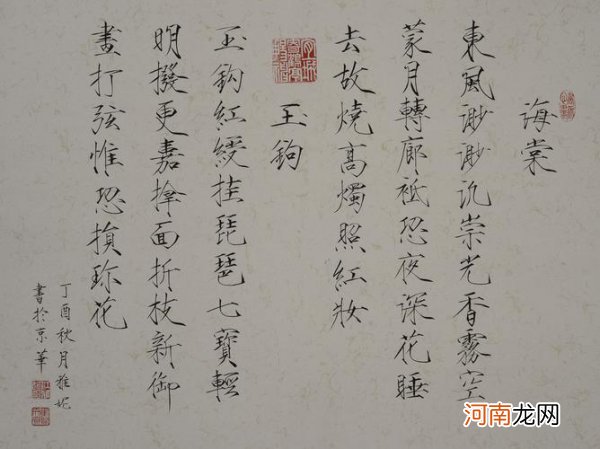 海棠
東風渺渺汎崇光香霧空
蒙月轉廊祗恐夜深花睡
去故燒高燭照紅妝
玉鉤
玉鉤紅綬挂琵琶七寶輕
明撥更嘉揜面折枝新御
畫打弦惟恐損珎花
丁酉秋月雅妮
書於京華
河南龙网